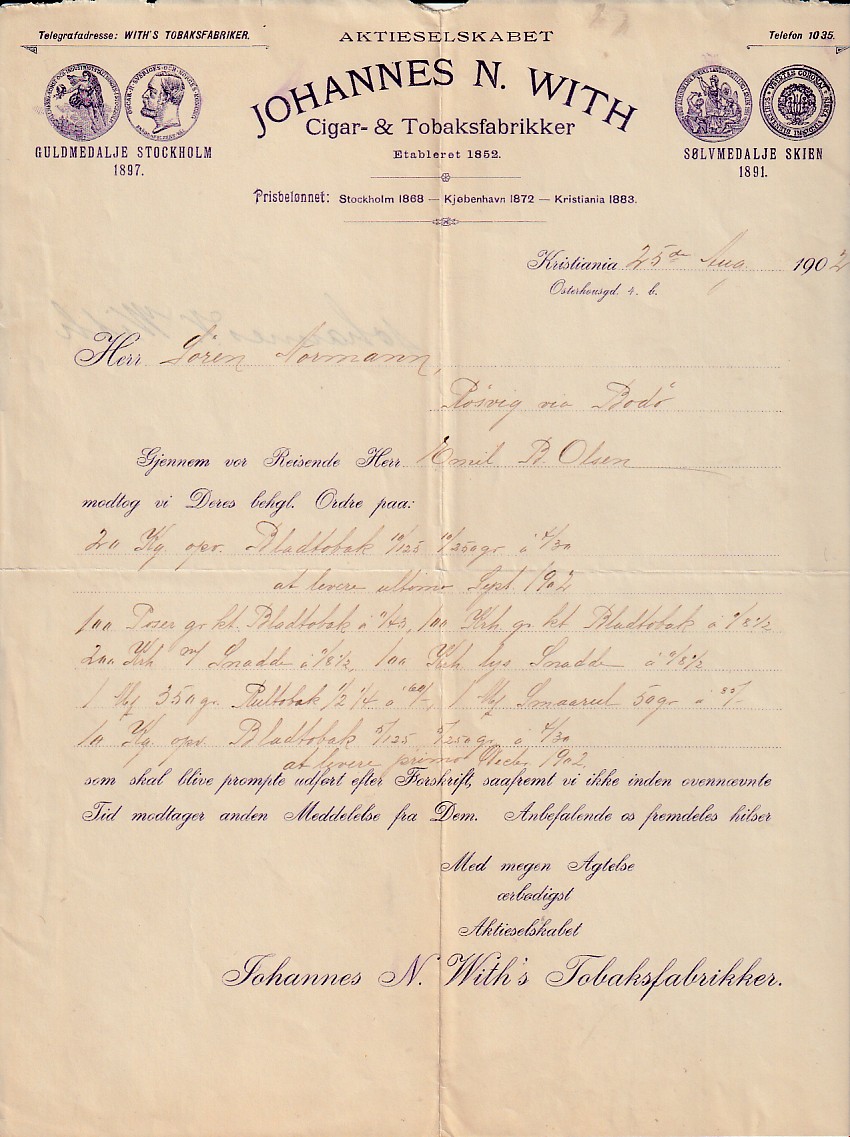 Telegrafadresse: WITH'S TOBAKSFABRIKER.
AKTIESELSKABET
Telefon 1035.
JOHANNES N. WITH
Cigar- & Tobaksfabrikker
Etableret 1852.
GULDMEDALJE STOCKHOLM
1897.
SØLVMEDALJE SKIEN
1891.
Prisbelønnet: Stockholm 1868 — Kjøbenhavn 1872 — Kristiania 1883.
Kristiania 25de Aug. 1902
Osterhousgd. 4. b.
Herr Sören Normann,
Rösvig via Bodö
Gjennem vor Reisende Herr Emil B Olsen
modtog vi Deres behgl. Ordre paa:
20 Kg. opv. Bladtobak 10/125 10/250 gr. á 4/30
at levere ultimo Sept 1902
100 Poser gr. kt. Bladtobak á 100 Krh gr kt Bladtobak á "/8 1/2
200 Krh m/ Snadde á "/8 1/2, 100 Krh lys Snadde á "/8 1/2
1 350 gr. Rultobak 1/2 1/4 á 1 Smaarul 50 gr á
10 Kg. opv. Bladtobak 5/125 5/250 gr. á 4/30
at levere primo 1902,
som skal blive prompte udført efter Forskrift, saafremt vi ikke inden ovennævnte
Tid modtager anden Meddelelse fra Dem. Anbefalende os fremdeles hilser
Med megen Agtelse
ærbødigst
Aktieselskabet
Johannes N. With's Tobaksfabrikker.